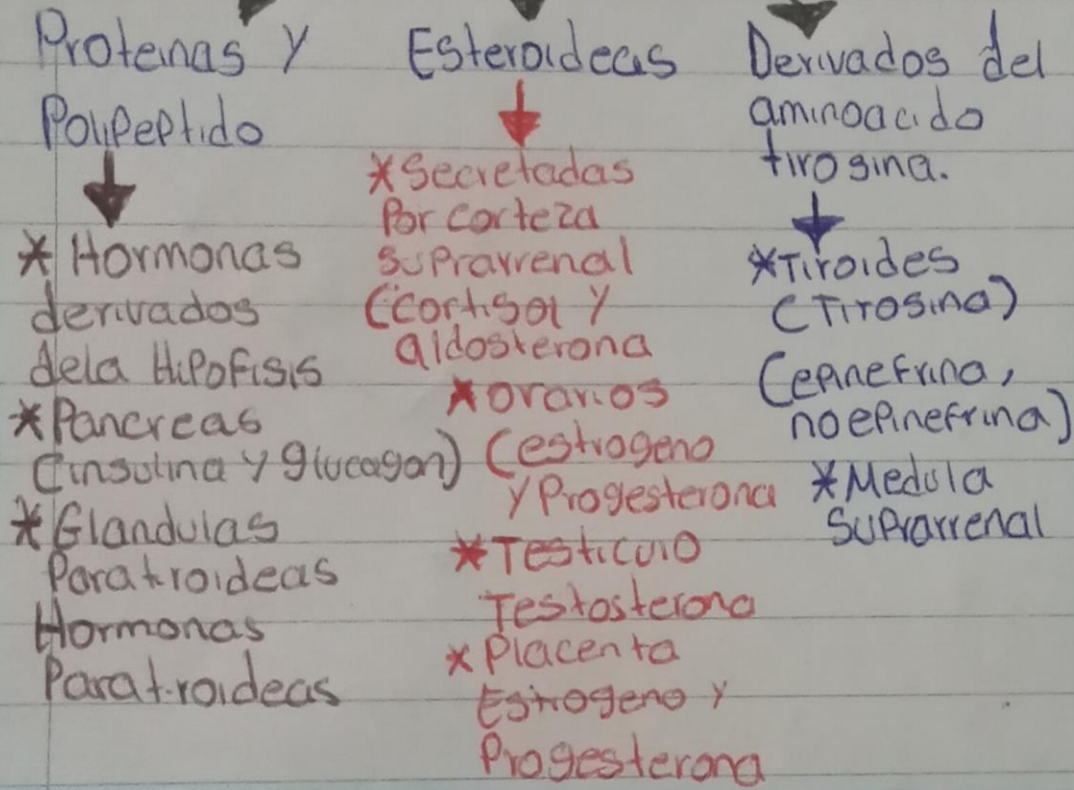 Proteinas y
Polipeptido
* Hormonas
derivados
dela Hipofisis
* Pancreas
(insulina y glucagon)
* Glandulas
Paratiroideas
Hormonas
Paratiroideas
Esteroideas
* Secretadas
Por corteza
suprarrenal
(cortisol y
aldosterona
* ovarios
(estrogeno
y Progesterona
* Testiculo
Testosterona
* Placenta
Estrogeno y
Progesterona
Derivados del
aminoacido
tirosina.
* Tiroides
(Tirosina)
(epinefrina,
noepinefrina)
* Medula
Suprarrenal